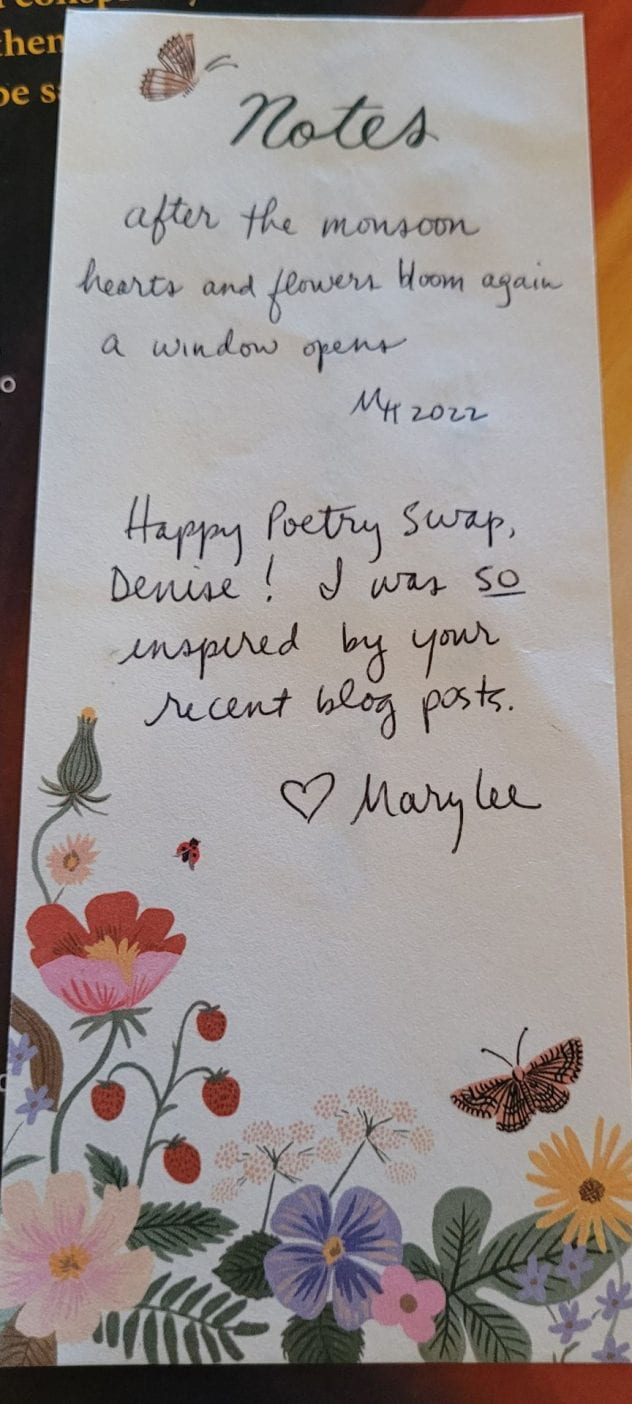 then
Notes
after the monsoon
hearts and flowers bloom again
a window opens
MH 2022
Happy Poetry Swap,
Denise! I was so
inspired by your
recent blog posts.
♡ Mary Lee